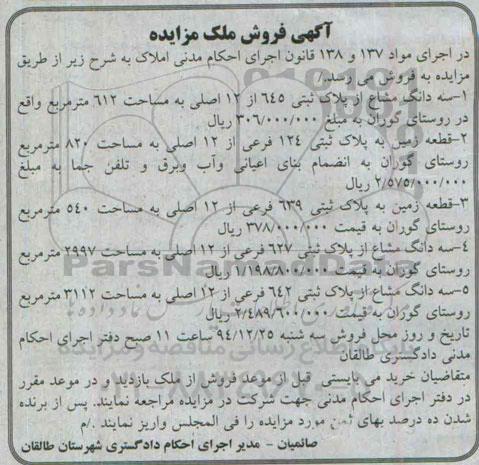 آگهی فروش ملک مزایده
در اجرای مواد ۱۳۷ و ۱۳۸ قانون اجرای احکام مدنی املاک به شرح زیر از طریق
مزایده به فروش می رسد./
۱-سه دانگ مشاع از پلاک ثبتی ۶۴۵ از ۱۲ اصلی به مساحت ۶۱۲ مترمربع واقع
در روستای گوران به مبلغ ۳۰۶/۰۰۰/۰۰۰ ریال
۲-قطعه زمین به پلاک ثبتی ۱۲۴ فرعی از ۱۲ اصلی به مساحت ۸۲۰ مترمربع
روستای گوران به انضمام بنای اعیانی وآب وبرق و تلفن جما به مبلغ
۲/۵۷۵/۰۰۰/۰۰۰ ریال
۳-قطعه زمین به پلاک ثبتی ۶۳۹ فرعی از ۱۲ اصلی به مساحت ۵۴۰ مترمربع
روستای گوران به قیمت ۳۷۸/۰۰۰/۰۰۰ ریال
۴-سه دانگ مشاع از پلاک ثبتی ۶۲۷ فرعی از ۱۲ اصلی به مساحت ۲۹۹۷ مترمربع
روستای گوران به قیمت ۱/۱۹۸/۸۰۰/۰۰۰ ریال
۵-سه دانگ مشاع از پلاک ثبتی ۶۴۲ فرعی از ۱۲ اصلی به مساحت ۳۱۱۲ مترمربع
روستای گوران به قیمت ۲/۴۸۹/۶۰۰/۰۰۰ ریال
تاریخ و روز محل فروش سه شنبه ۹۴/۱۲/۲۵ ساعت ۱۱ صبح دفتر اجرای احکام
مدنی دادگستری طالقان
متقاضیان خرید می بایستی قبل از موعد فروش از ملک بازدید و در موعد مقرر
در دفتر اجرای احکام مدنی جهت شرکت در مزایده مراجعه نمایند. پس از برنده
شدن ده درصد بهای ثمن مورد مزایده را فی المجلس واریز نمایند ./م
صائمیان - مدیر اجرای احکام دادگستری شهرستان طالقان
ParsNamadData